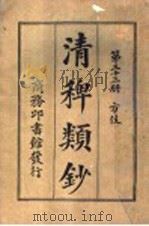 第三十三冊 方伎
清稗類鈔
商務印書館發行